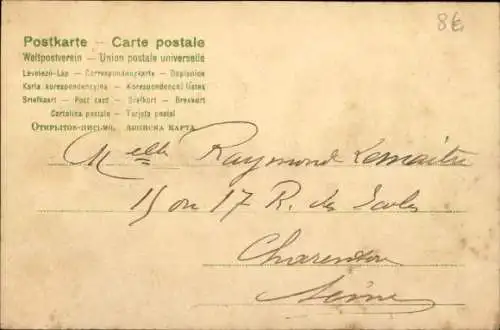 8€
Postkarte – Carte postale
Weltpostverein – Union postale universelle
Levelező-Lap – Correspondenzkarte – Dopisnice
Karta korespondencyjna – Korespondenčni listek
Briefkaart – Post card – Brefkort – Brevkort
Cartolina postale – Tarjeta postal
Открытое письмо. дописна карта
Melle Raymond Lemaitre
15 ou 17 R. des Ecoles
Charenton
Seine